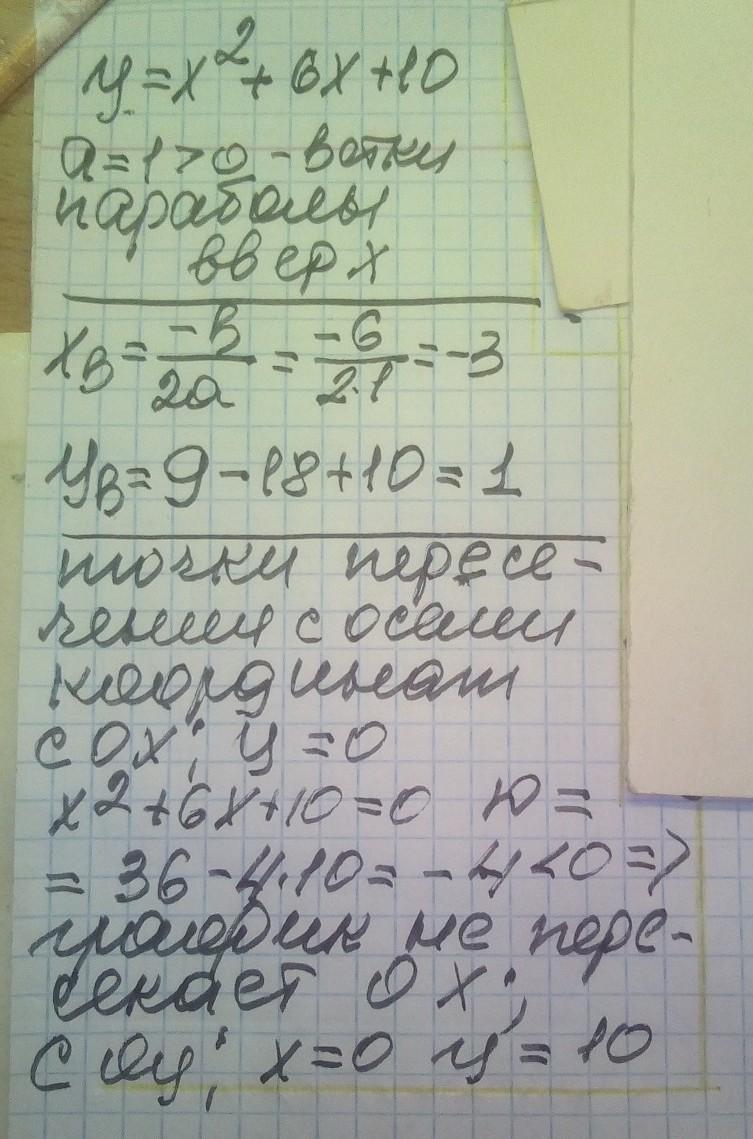 y = x² + 6x + 10
a = 1 > 0 - ветки
параболы
вверх
xв = -в/2a = -6/2·1 = -3
yв = 9 - 18 + 10 = 1
точки пересе-
чения с осами
координат
с OX; y = 0
x² + 6x + 10 = 0 D =
= 36 - 4·10 = -4 < 0 =>
график не пере-
секает OX;
с Oy; x = 0 y = 10